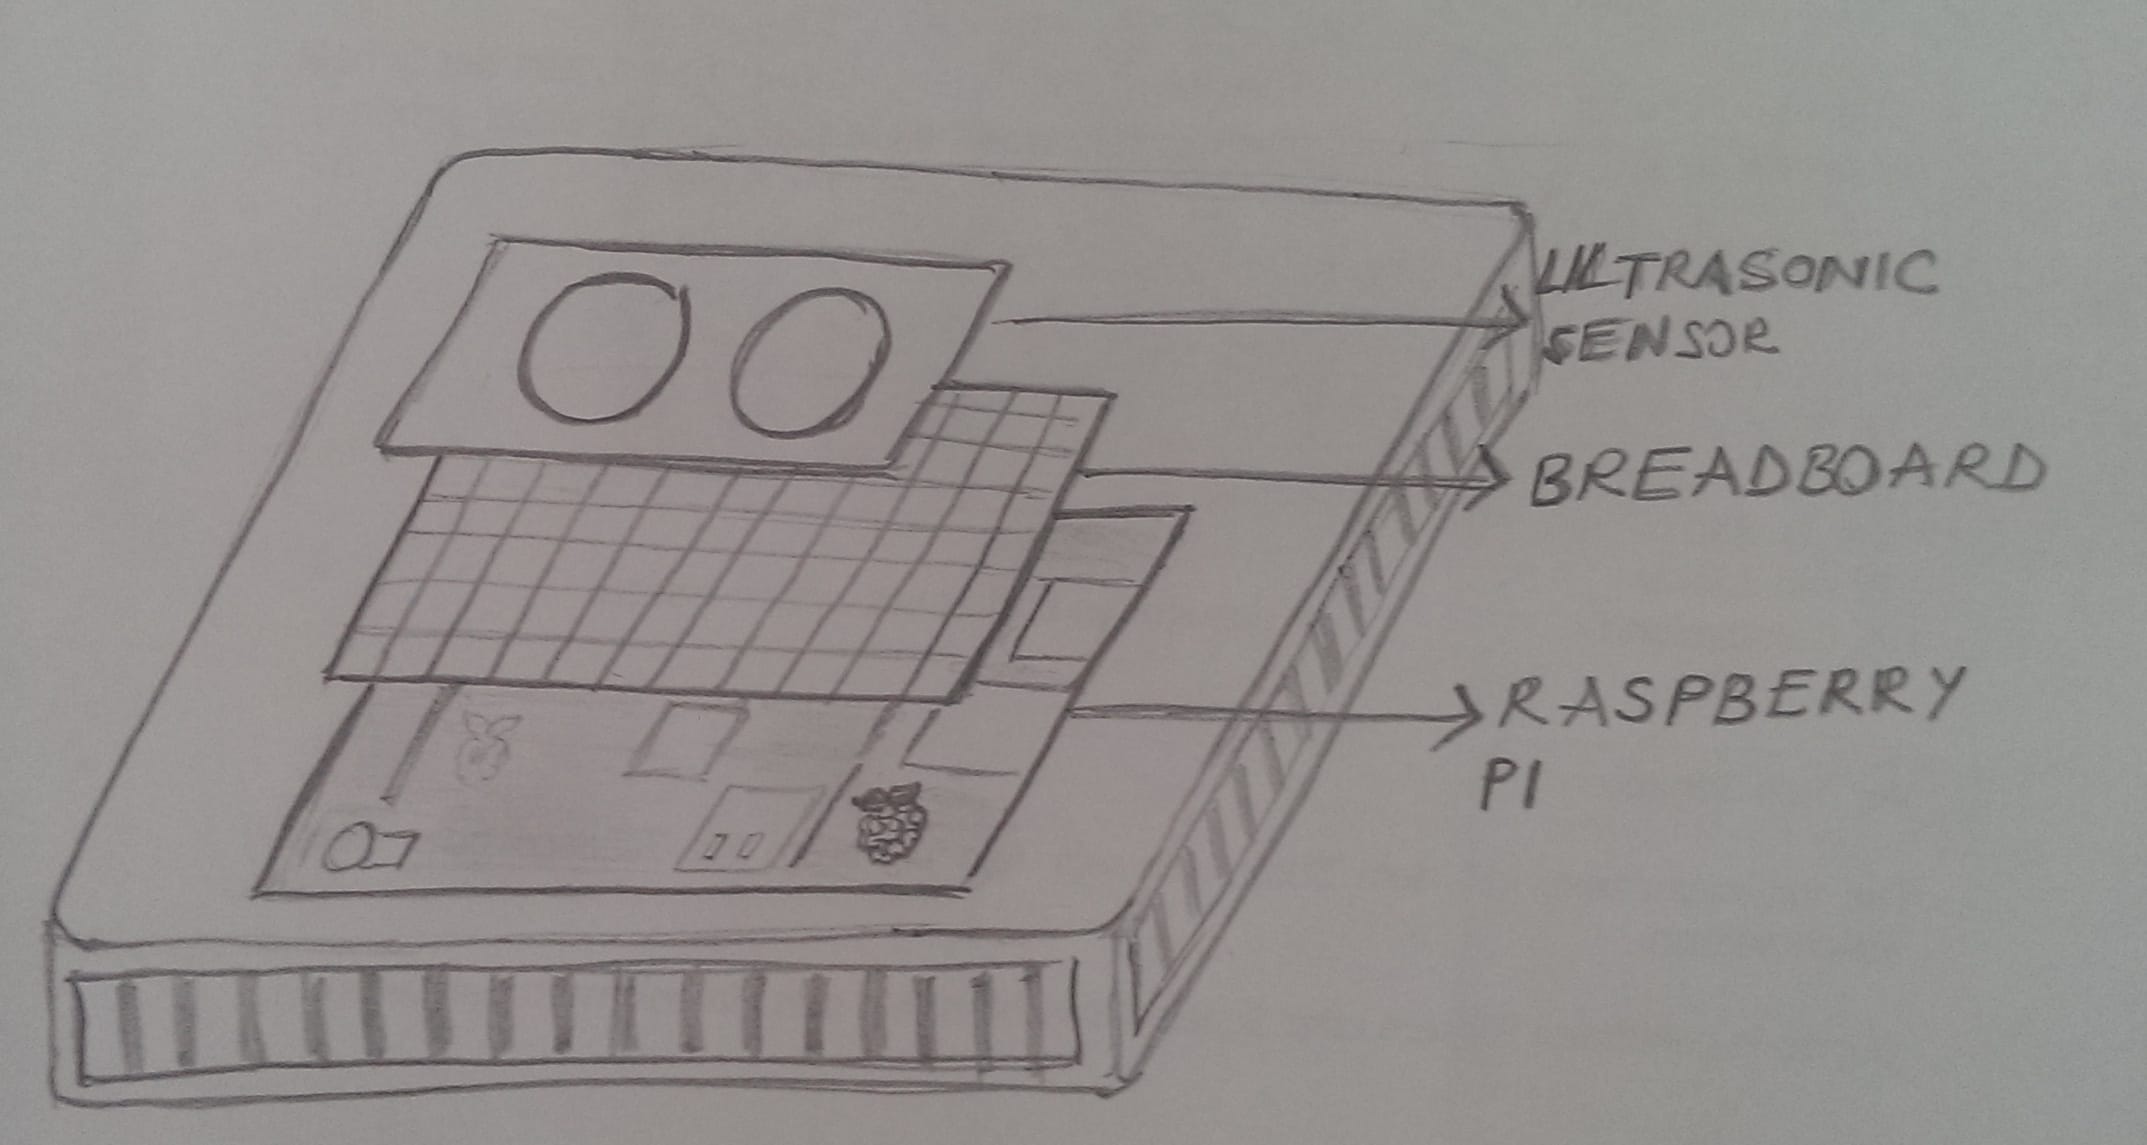 ULTRASONIC
SENSOR
BREADBOARD
RASPBERRY
PI